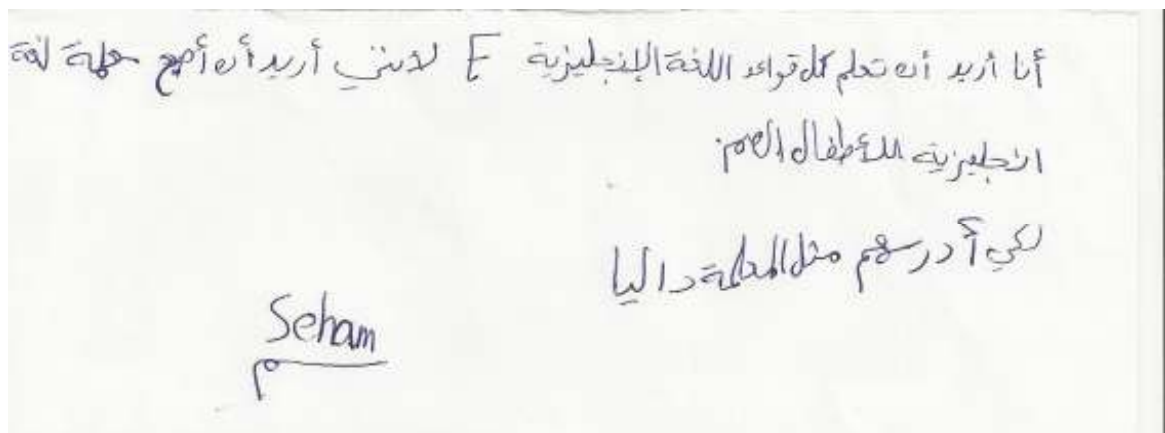 أنا أريد أن تعلم كل قواعد اللغة الإنجليزية E لأنني أريد أن أصبح معلمة لغة
انجليزية للأطفال الصم.
لكي أدرسهم مثل المعلمة داليا
Seham